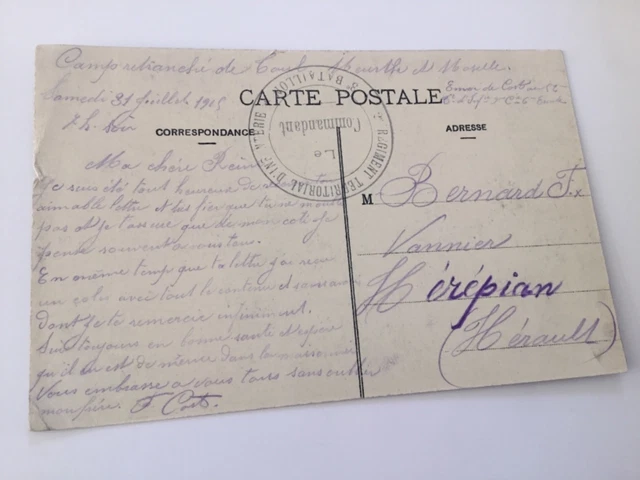 Camp retranché de Toul Meurthe et Moselle
Samedi 31 Juillet 1915
7 h. Soir
CARTE POSTALE
CORRESPONDANCE
ADRESSE
RÉGIMENT TERRITORIAL D'INF
BATAILLON
Le
Commandant
Ma chère
J'ai été tout heureux de
aimable lettre
pas et je t'assure que de mon côté je
pense souvent à vous tous.
En même temps que ta lettre j'ai reçu
un colis avec tout le contenu
dont je te remercie infiniment.
Suis toujours en bonne santé et espère
qu'il en est de même dans la maison
Vous embrasse à vous tous sans oublier
mon père.
M Bernard F.x
Vannier
Hérépian
(Hérault)